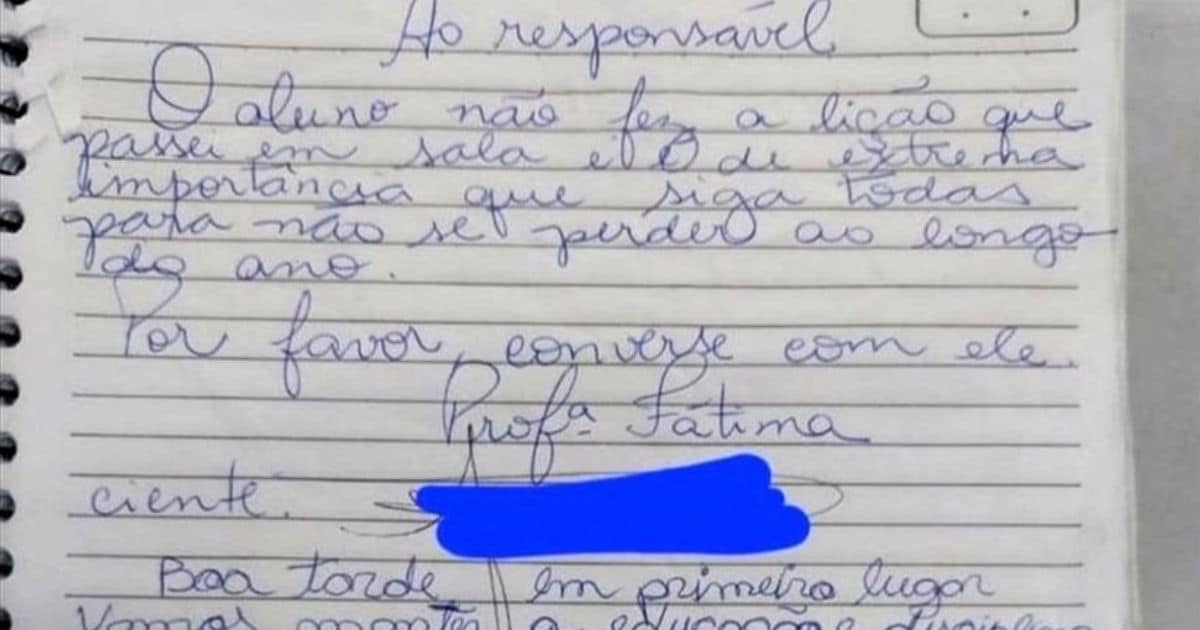 Ao responsável
O aluno não fez a lição que
passei em sala e é de extrema
importância que siga todas
para não se perder ao longo
do ano.
Por favor, converse com ele.
Profª Fátima
ciente.
Boa tarde, em primeiro lugar
Vamos manter a educação e disciplina